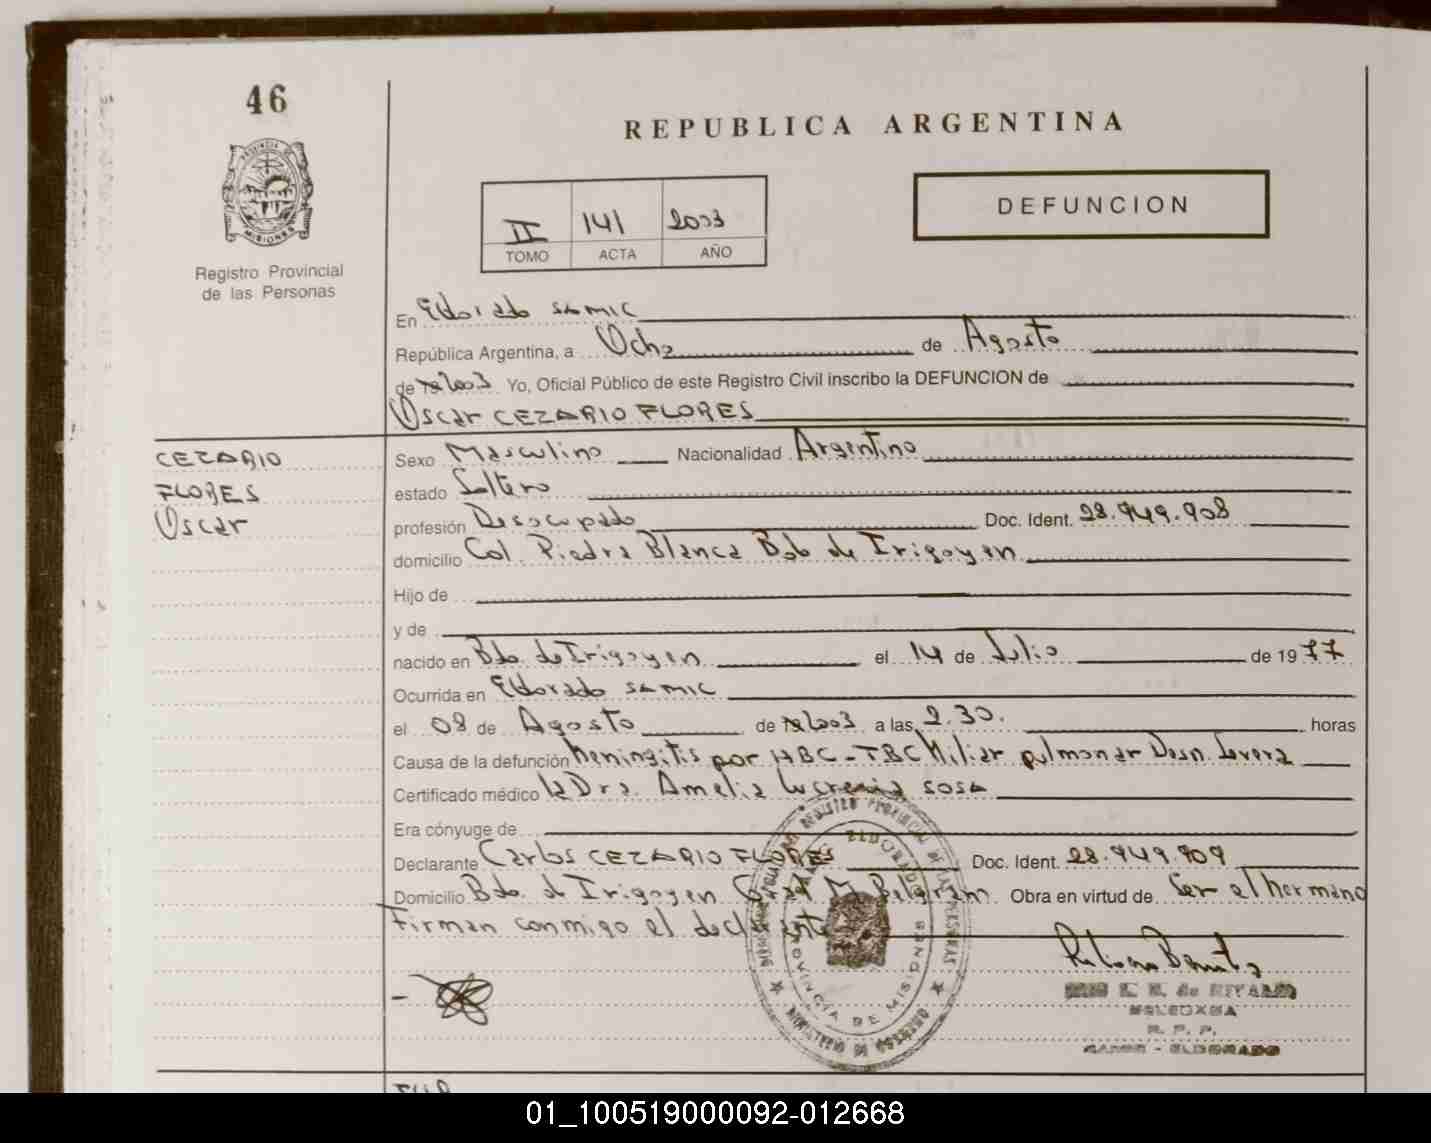 46
REPUBLICA ARGENTINA
PROVINCIA DE
MISIONES
Registro Provincial
de las Personas
II 141 2003
TOMO ACTA AÑO
DEFUNCION
En Eldorado SAMIC
República Argentina, a Ocho de Agosto
de 2003 Yo, Oficial Público de este Registro Civil inscribo la DEFUNCION de
Oscar CEZARIO FLORES
CEZARIO
FLORES
Oscar
Sexo Masculino Nacionalidad Argentino
estado Soltero
profesión Desocupado Doc. Ident. 28.949.908
domicilio Col. Piedra Blanca Bdo de Irigoyen
Hijo de
y de
nacido en Bdo. de Irigoyen el 14 de Julio de 1977
Ocurrida en Eldorado SAMIC
el 08 de Agosto de 2003 a las 2.30. horas
Causa de la defunción Meningitis por HBC - TBC Miliar pulmonar Desn. Severa
Certificado médico la Dra. Amelia Lucrecia SOSA
Era cónyuge de
Declarante Carlos CEZARIO FLORES Doc. Ident. 28.949.909
Domicilio Bdo. de Irigoyen M. Belgrano Obra en virtud de Ser el hermano
Firman conmigo el declarante
REGISTRO PROVINCIAL DE LAS PERSONAS
ELDORADO
PROVINCIA DE MISIONES
MINISTERIO DE GOBIERNO
DE RIVALD
R. P. P.
SAMIC - ELDORADO
01_100519000092-012668